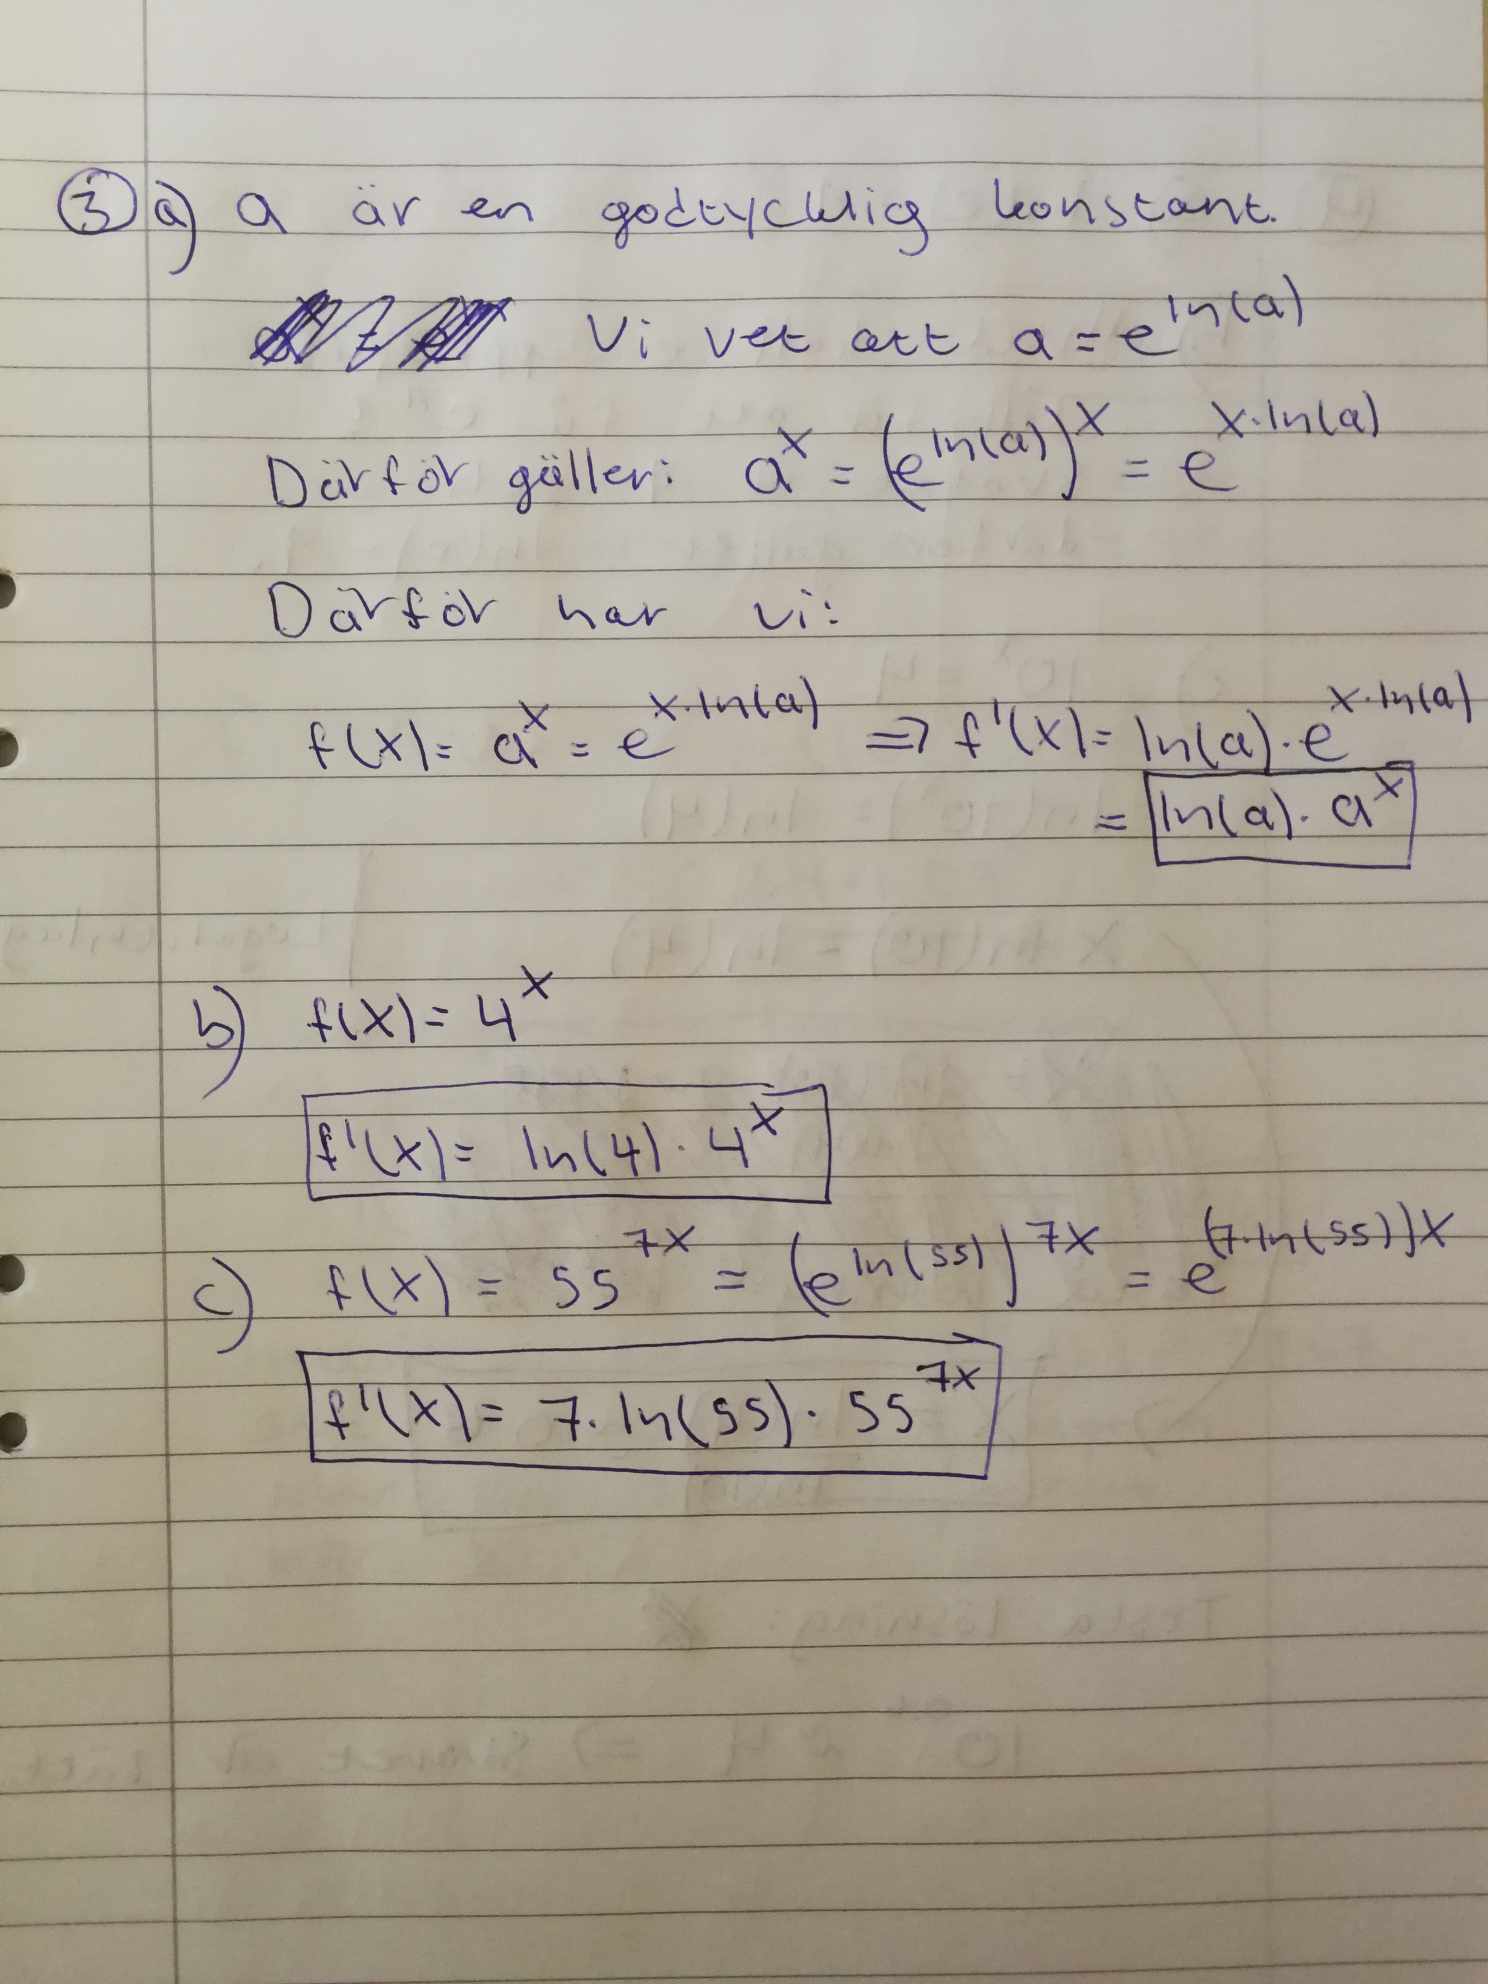 3 a) a är en godtycklig konstant.
Vi vet att a = e^ln(a)
Därför gäller: a^x = (e^ln(a))^x = e^x·ln(a)
Därför har vi:
f(x) = a^x = e^x·ln(a) => f'(x) = ln(a)·e^x·ln(a)
= ln(a)·a^x
b) f(x) = 4^x
f'(x) = ln(4)·4^x
c) f(x) = 55^7x = (e^ln(55))^7x = e^(7·ln(55))x
f'(x) = 7·ln(55)·55^7x